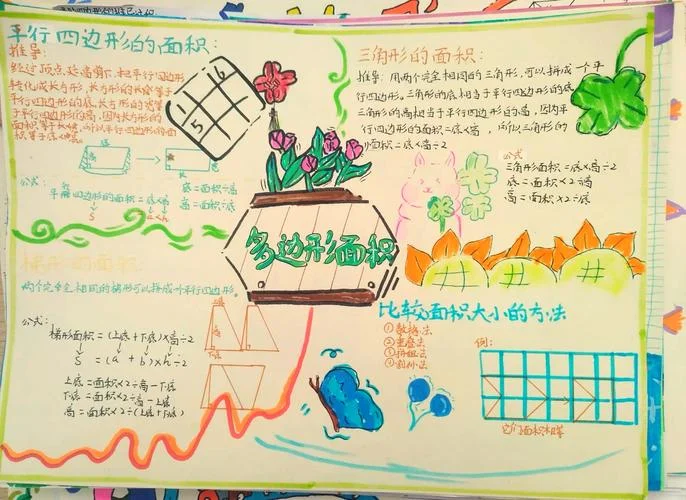 平行四边形的面积:
推导:
经过顶点处高剪下,把平行四边形
转化成长方形,长方形的长等于
平行四边形的底,长方形的宽等
于平行四边形的高,因为长方形的
面积等于长×宽,所以平行四边形的面
积等于底×高。
1 16
5
高
底
公式:
平行四边形的面积=底×高
S
底=面积÷高
高=面积÷底
三角形的面积:
推导:用两个完全相同的三角形,可以拼成一个平
行四边形。三角形的底相当于平行四边形的底
三角形的高相当于平行四边形的高,因为平
行四边形的面积=底×高,所以三角形的
面积=底×高÷2
公式
三角形面积=底×高÷2
底=面积×2÷高
高=面积×2÷底
多边形面积
梯形的面积:
两个完全相同的梯形可以拼成一个平行四边形。
公式:
梯形面积=(上底+下底)×高÷2
S=(a+b)×h÷2
上底=面积×2÷高-下底
下底=面积×2÷高-上底
高=面积×2÷(上底+下底)
上底
高
下底
比较面积大小的方法
①数格法
②重叠法
③拼组法
④割补法
例:
它们面积相等